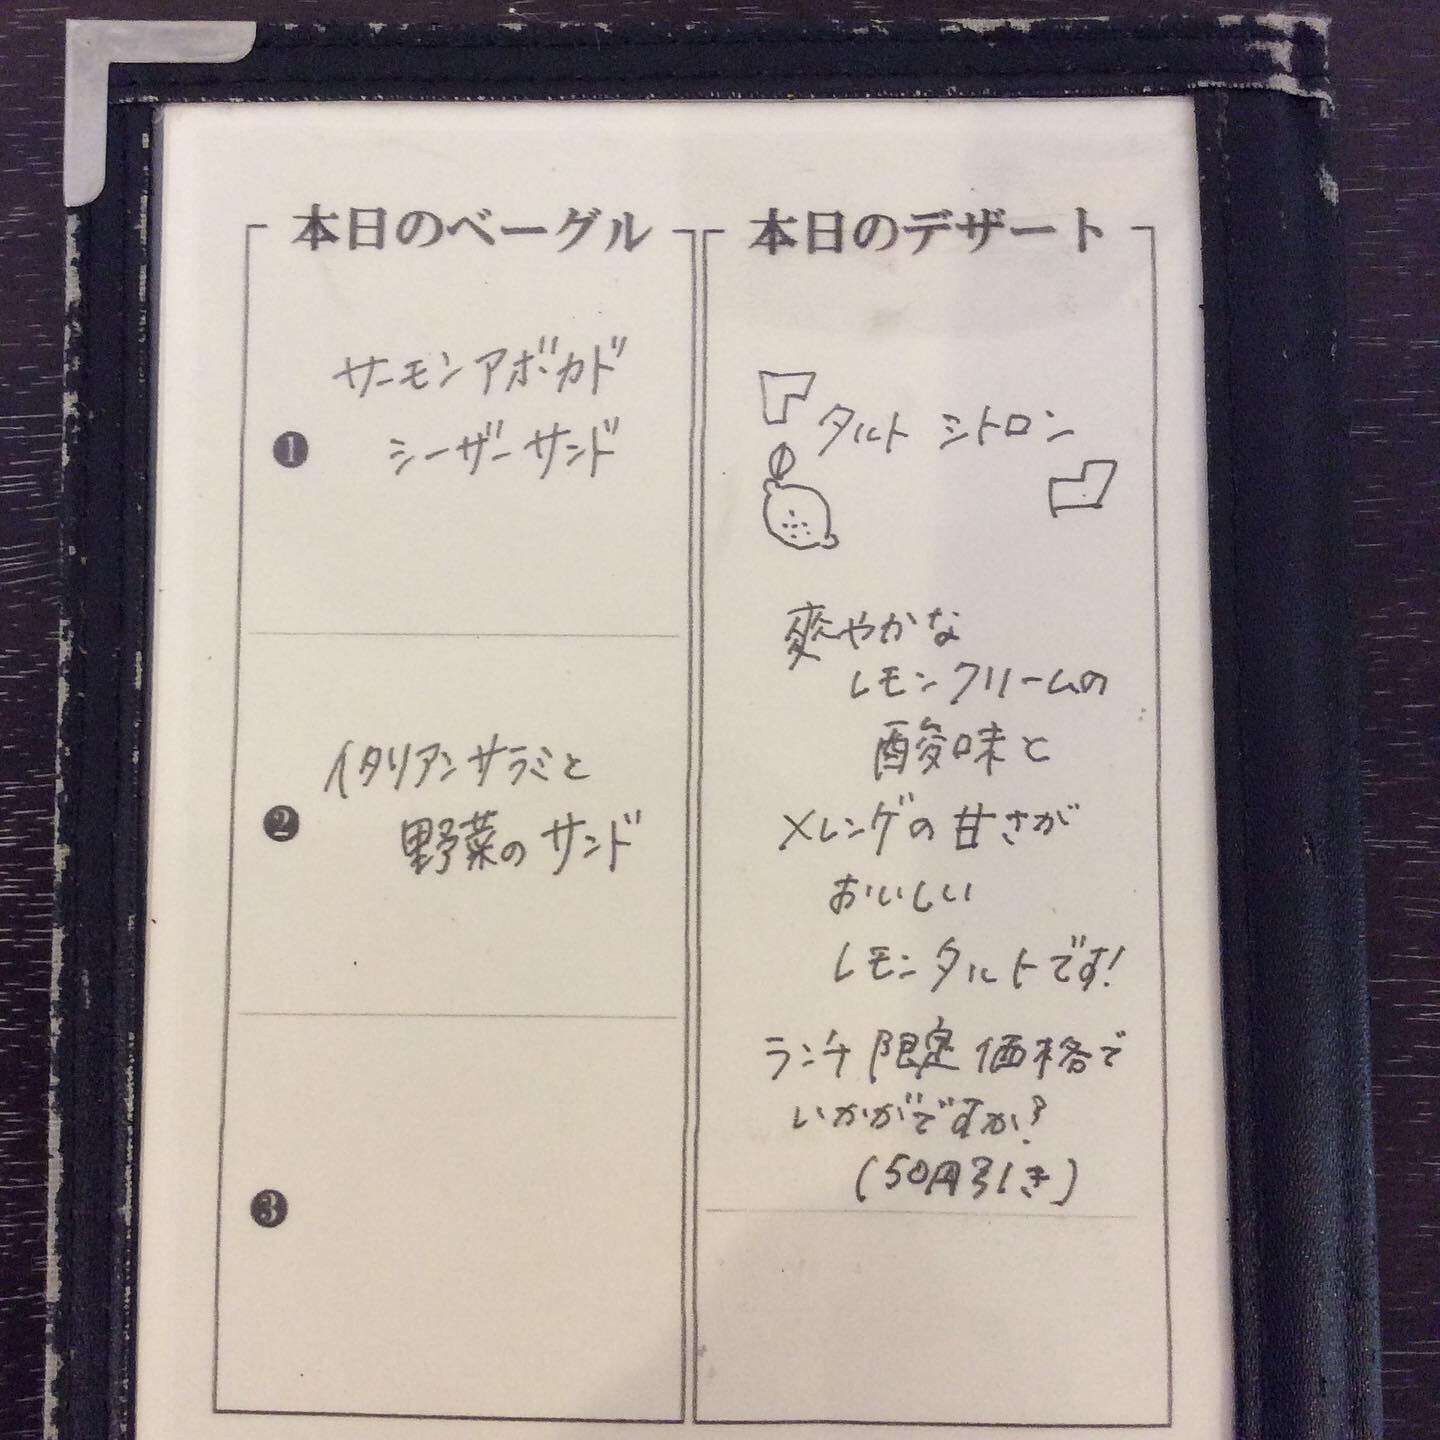 本日のベーグル
❶
サーモンアボカド
シーザーサンド
❷
イタリアンサラミと
野菜のサンド
❸
本日のデザート
タルト シトロン
爽やかな
レモンクリームの
酸味と
メレンゲの甘さが
おいしい
レモンタルトです!
ランチ限定価格で
いかがですか?
(50円引き)